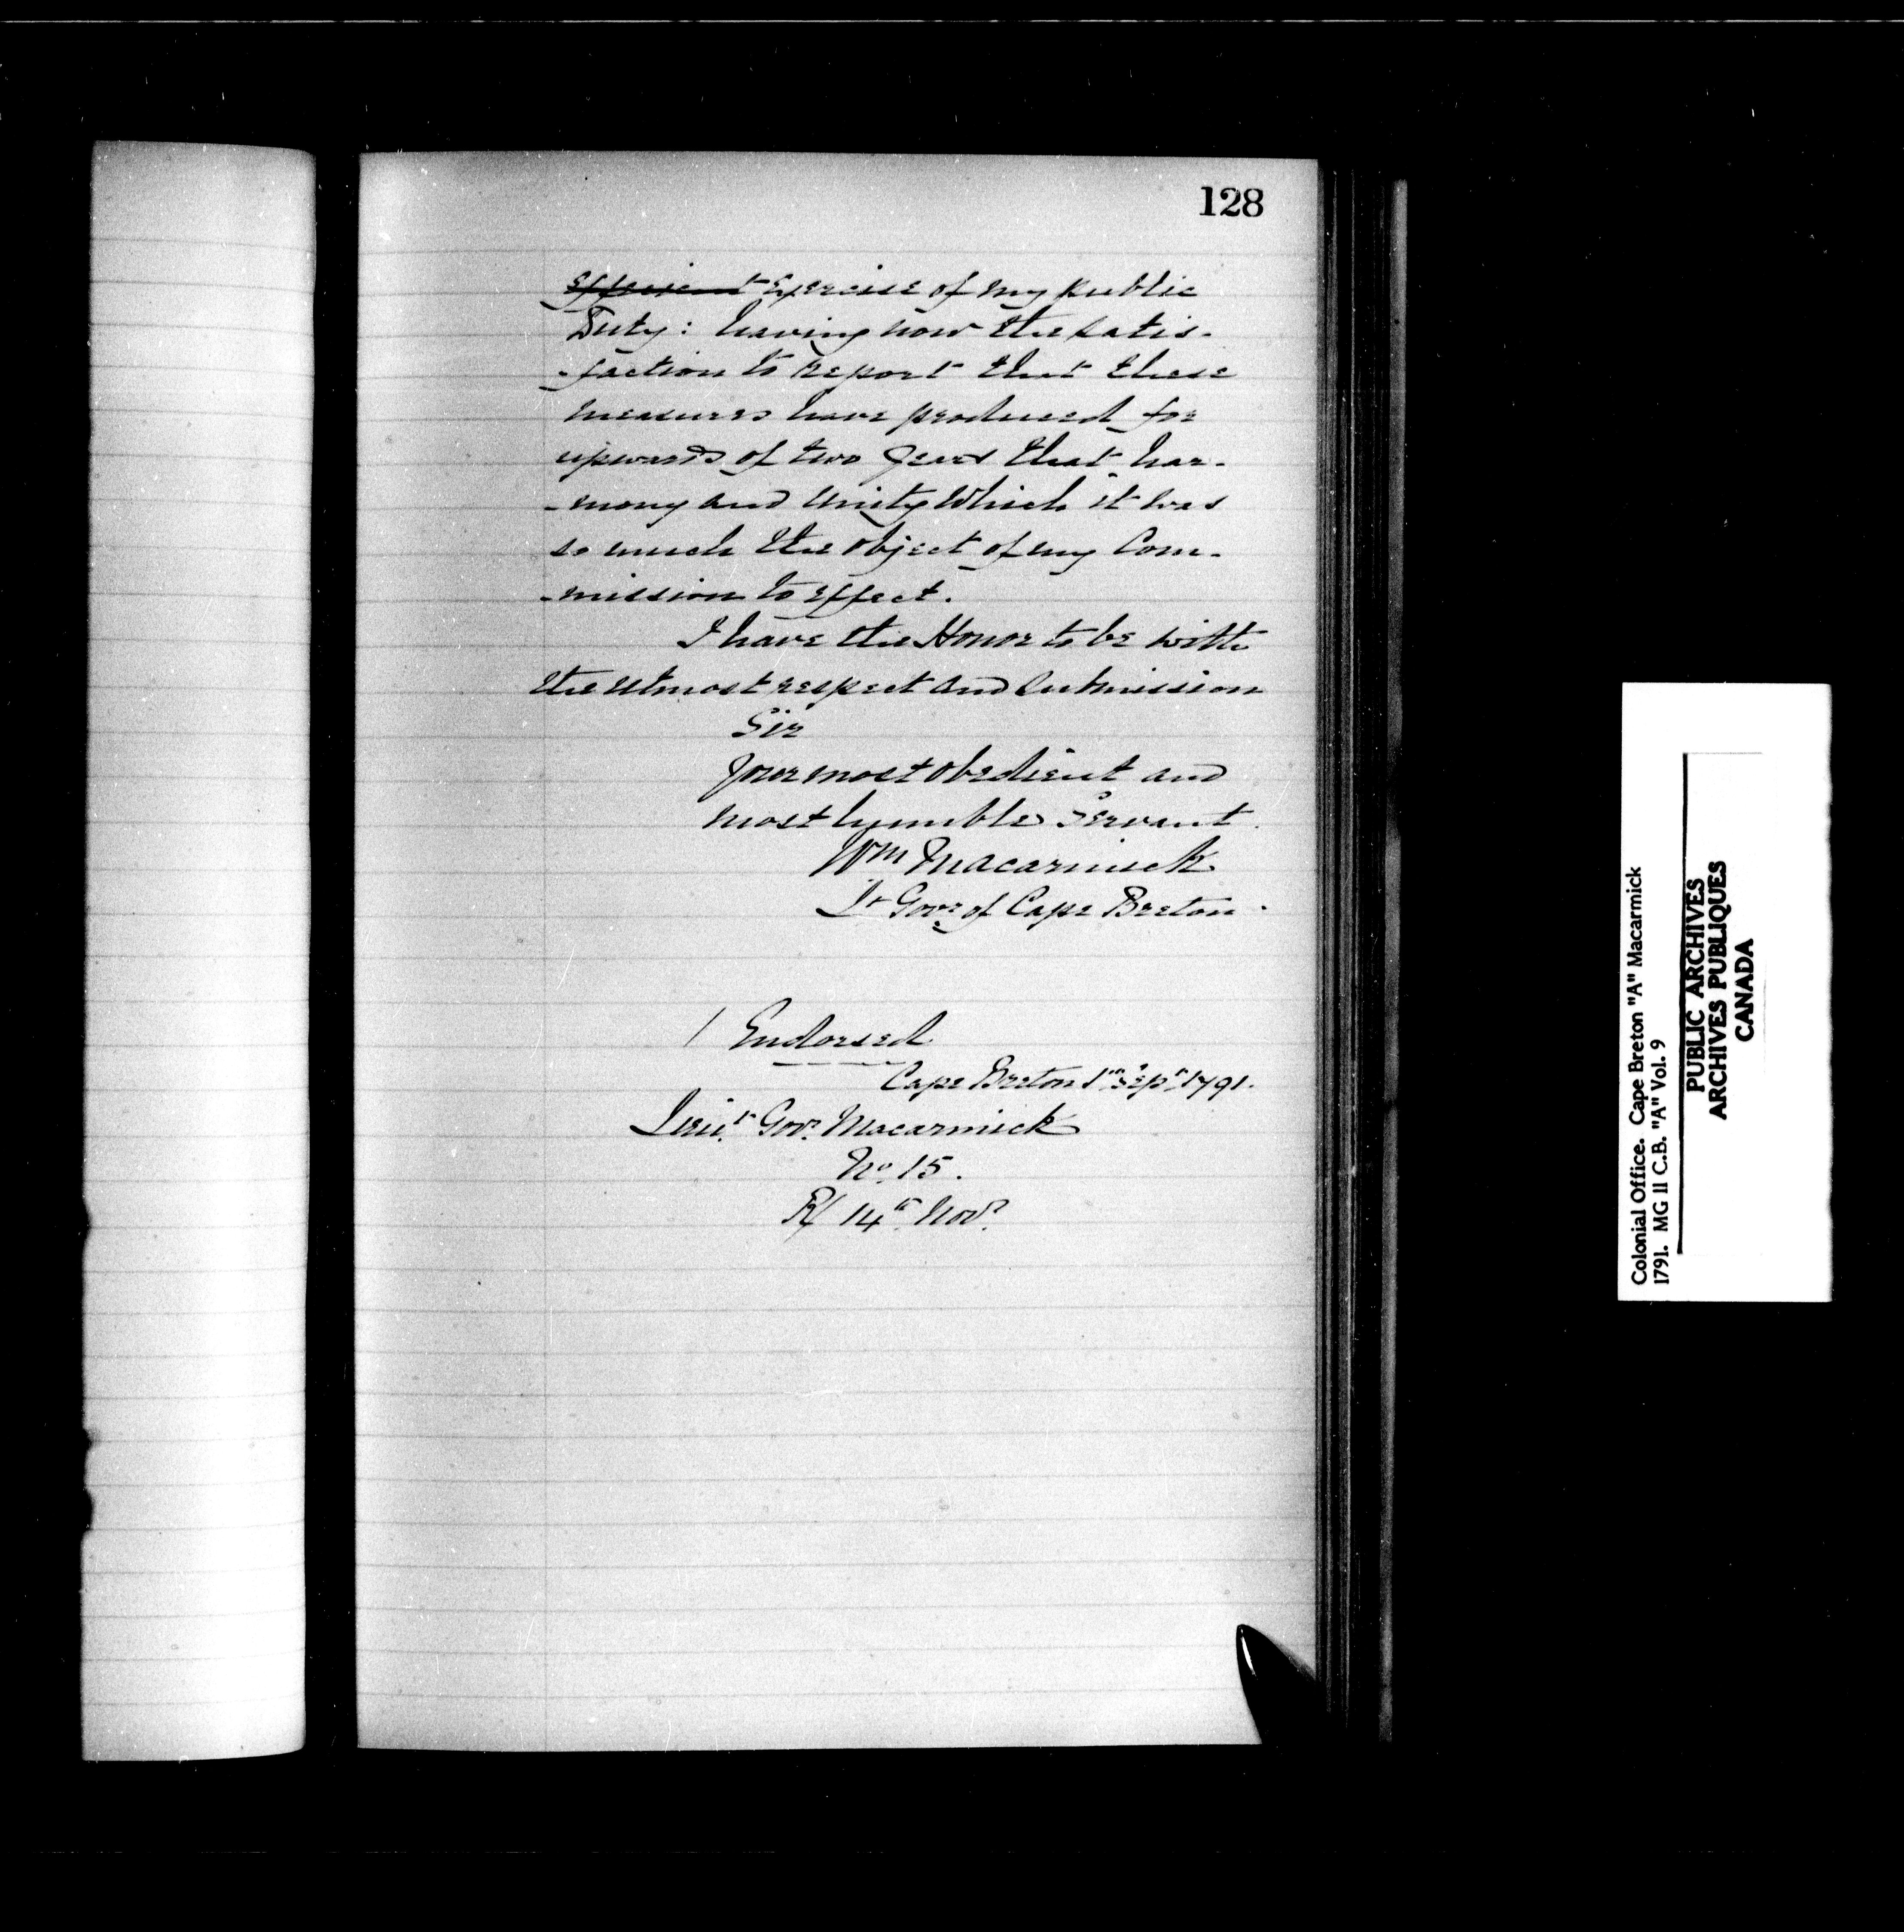 128
efficient Exercise of my public
Duty: having now the satis-
-faction to report that these
measures have produced for
upwards of two years that har-
-mony and Unity Which it was
so much the object of my Com-
-mission to effect.
I have the Honor to be with
the utmost respect and Submission
Sir
your most obedient and
most humble Servant.
Wm Macarmick
Lt Govr of Cape Breton.
Endorsed
Cape Breton 1st Sepr 1791.
Lieut Govr Macarmick
No 15.
R/ 14th Novr
Colonial Office. Cape Breton "A" Macarmick
1791. MG 11 C.B. "A" Vol. 9
PUBLIC ARCHIVES
ARCHIVES PUBLIQUES
CANADA